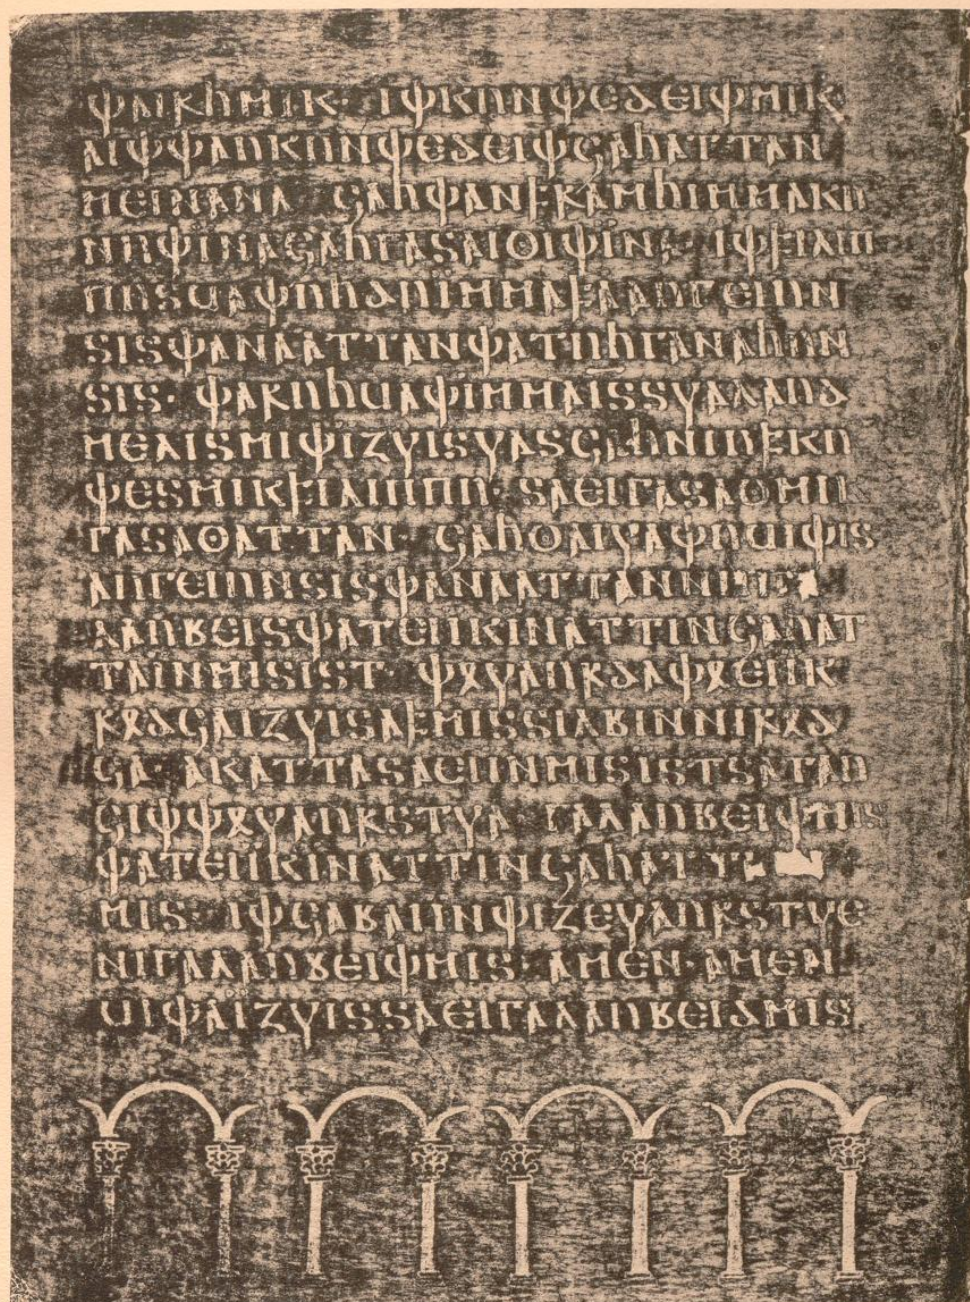 𐌸𐌰𐌹𐍂𐌷𐌼𐌹𐌺· 𐌹𐌸𐌺𐌿𐌽𐌸𐌴𐌳𐌴𐌹𐌸𐌼𐌹𐌺
𐌰𐌹𐌸𐌸𐌰𐌿𐌺𐌿𐌽𐌸𐌴𐌳𐌴𐌹𐌸𐌾𐌰𐌷𐌰𐍄𐍄𐌰𐌽
𐌼𐌴𐌹𐌽𐌰𐌽𐌰 𐌾𐌰𐌷𐌸𐌰𐌽𐍆𐍂𐌰𐌼𐌷𐌹𐌼𐌼𐌰𐌺𐌿𐌽
𐌽𐌿𐌸𐌹̈𐌽𐌰𐌾𐌰𐌷𐌲𐌰𐍃𐌰𐌹𐍈𐌹𐌸𐌹̈𐌽𐌰· 𐌹𐌸𐍆𐌹𐌻𐌹𐍀
𐍀𐌿𐍃𐌵𐌰𐌸𐌿𐌷𐌳𐌿𐌹̈𐌼𐌼𐌰𐍆𐌰𐌰𐌿𐌲𐌴𐌹𐌿𐌽
𐍃𐌹𐍃𐌸𐌰𐌽𐌰𐌰𐍄𐍄𐌰𐌽𐌸𐌰𐍄𐌿𐌷𐌲𐌰𐌽𐌰𐌷𐌿𐌽
𐍃𐌹𐍃· 𐌸𐌰𐍂𐌿𐌷𐌵𐌰𐌸𐌹𐌼𐌼𐌰𐌹̈𐍃𐍃𐍅𐌰𐌻𐌰𐌿𐌳
𐌼𐌴𐌻𐌹𐍃𐌼𐌹𐌸𐌹𐌶𐍅𐌹𐍃𐍅𐌰𐍃𐌾𐌰𐌷𐌽𐌹𐌿𐍆𐌺𐌿𐌽
𐌸𐌴𐍃𐌼𐌹𐌺𐍆𐌹𐌻𐌹𐍀𐍀𐌿· 𐍃𐌰𐌴𐌹𐌲𐌰𐍃𐌰𐍈𐌼𐌹𐌺
𐌲𐌰𐍃𐌰𐍈𐌰𐍄𐍄𐌰𐌽· 𐌾𐌰𐌷𐍈𐌰𐌹𐍅𐌰𐌸𐌿𐌵𐌹𐌸𐌹𐍃
𐌰𐌿𐌲𐌴𐌹𐌿𐌽𐍃𐌹𐍃𐌸𐌰𐌽𐌰𐌰𐍄𐍄𐌰𐌽𐌽𐌹𐌿𐌲𐌰
𐌻𐌰𐌿𐌱𐌴𐌹𐍃𐌸𐌰𐍄𐌴𐌹𐌹̈𐌺𐌹𐌽𐌰𐍄𐍄𐌹𐌽𐌾𐌰𐌷𐌰𐍄
𐍄𐌰𐌹̈𐌽𐌼𐌹𐍃𐌹𐍃𐍄· 𐌸𐍉𐍅𐌰𐌿𐍂𐌳𐌰𐌸𐍉𐌴𐌹𐌹̈𐌺
𐍂𐍉𐌳𐌾𐌰𐌹𐌶𐍅𐌹𐍃𐌰𐍆𐌼𐌹𐍃𐍃𐌹𐌻𐌱𐌹𐌽𐌽𐌹𐍂𐍉𐌳
𐌾𐌰· 𐌰𐌺𐌰𐍄𐍄𐌰𐍃𐌰𐌴𐌹𐌹̈𐌽𐌼𐌹𐍃𐌹̈𐍃𐍄𐍃𐌰𐍄𐌰𐌿
𐌾𐌹𐌸𐌸𐍉𐍅𐌰𐌿𐍂𐍃𐍄𐍅𐌰· 𐌲𐌰𐌻𐌰𐌿𐌱𐌴𐌹𐌸𐌼𐌹𐍃
𐌸𐌰𐍄𐌴𐌹𐌹̈𐌺𐌹𐌽𐌰𐍄𐍄𐌹𐌽𐌾𐌰𐌷𐌰𐍄𐍄𐌰
𐌼𐌹𐍃· 𐌹𐌸𐌾𐌰𐌱𐌰𐌹𐌹̈𐌽𐌸𐌹𐌶𐌴𐍅𐌰𐌿𐍂𐍃𐍄𐍅𐌴
𐌽𐌹𐌲𐌰𐌻𐌰𐌿𐌱𐌴𐌹𐌸𐌼𐌹𐍃· 𐌰𐌼𐌴𐌽· 𐌰𐌼𐌴𐌽
𐌵𐌹𐌸𐌰𐌹̈𐌶𐍅𐌹𐍃𐍃𐌰𐌴𐌹𐌲𐌰𐌻𐌰𐌿𐌱𐌴𐌹𐌳𐌼𐌹𐍃